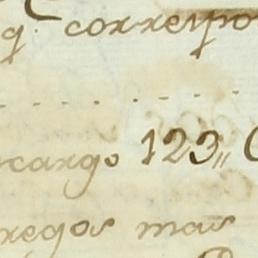 q. correspo
cargo 123,,
regos mas